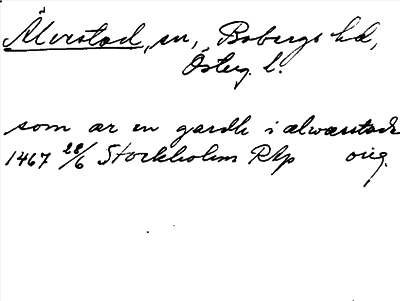 Älvestad, sn, Bobergs hd,
Österg. l.
som ær en gardh i alwæstada
1467 28/6 Stockholm RAp orig.